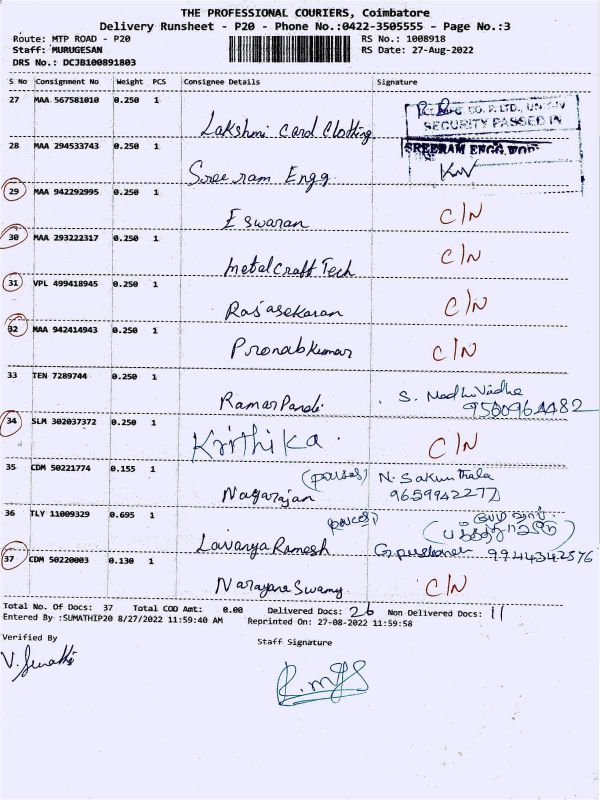 THE PROFESSIONAL COURIERS, Coimbatore
Delivery Runsheet - P20 - Phone No.:0422-3505555 - Page No.:3
Route: MTP ROAD - P20
RS No.: 1008918
Staff: MURUGESAN
RS Date: 27-Aug-2022
DRS No.: DCJB100891803
S No Consignment No Weight PCS Consignee Details Signature
27 MAA 567581010 0.250 1
Lakshmi Card Clothing
CO. P. LTD., UNIT-IV
SECURITY PASSED IN
28 MAA 294533743 0.250 1
SREERAM ENGG
Sree ram Engg
29 MAA 942292995 0.250 1
Eswaran C/N
30 MAA 293222317 0.250 1
Metal Craft Tech C/N
31 VPL 499418945 0.250 1
Rajasekaran C/N
32 MAA 942414943 0.250 1
Pronab Kumar C/N
33 TEN 7289744 0.250 1
Ramar Pandi S. Madhu
34 SLM 302037372 0.250 1
Krithika. C/N
35 CDM 50221774 0.155 1
Nagarajan N. Sakunthala
9659942277
36 TLY 11009329 0.695 1
Lavanya Ramesh 9944342576
37 CDM 50220003 0.130 1
Narayana Swamy C/N
Total No. Of Docs: 37 Total COD Amt: 0.00 Delivered Docs: 26 Non Delivered Docs: 11
Entered By :SUMATHIP20 8/27/2022 11:59:40 AM Reprinted On: 27-08-2022 11:59:58
Verified By
Staff Signature